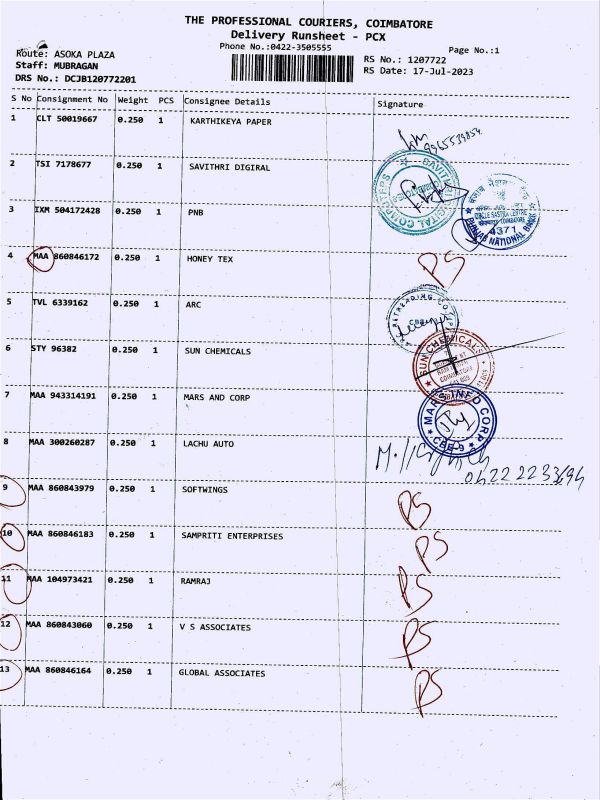 THE PROFESSIONAL COURIERS, COIMBATORE
Delivery Runsheet - PCX
Phone No.:0422-3505555
Page No.:1
Route: ASOKA PLAZA
Staff: MUBRAGAN
DRS No.: DCJB120772201
RS No.: 1207722
RS Date: 17-Jul-2023
S No Consignment No Weight PCS Consignee Details Signature
1 CLT 50019667 0.250 1 KARTHIKEYA PAPER
9965539854
2 TSI 7178677 0.250 1 SAVITHRI DIGIRAL
3 IXM 504172428 0.250 1 PNB
CIRCLE SASTRA CENTRE
4371
PUNJAB NATIONAL BANK
4 MAA 860846172 0.250 1 HONEY TEX PS
5 TVL 6339162 0.250 1 ARC
6 STY 96382 0.250 1 SUN CHEMICALS
SUN CHEMICAL
7 MAA 943314191 0.250 1 MARS AND CORP
MARS INFO CORP
CBE-9
8 MAA 300260287 0.250 1 LACHU AUTO
9 MAA 860843979 0.250 1 SOFTWINGS PS
10 MAA 860846183 0.250 1 SAMPRITI ENTERPRISES PS
11 MAA 104973421 0.250 1 RAMRAJ PS
12 MAA 860843060 0.250 1 V S ASSOCIATES PS
13 MAA 860846164 0.250 1 GLOBAL ASSOCIATES PS